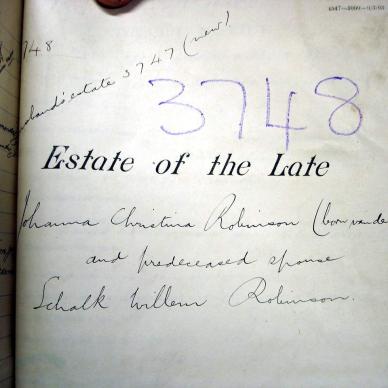 3748
husband's estate 3747 (new)
3748
Estate of the Late
Johanna Christina Robinson (born van de
and predeceased spouse
Schalk Willem Robinson.